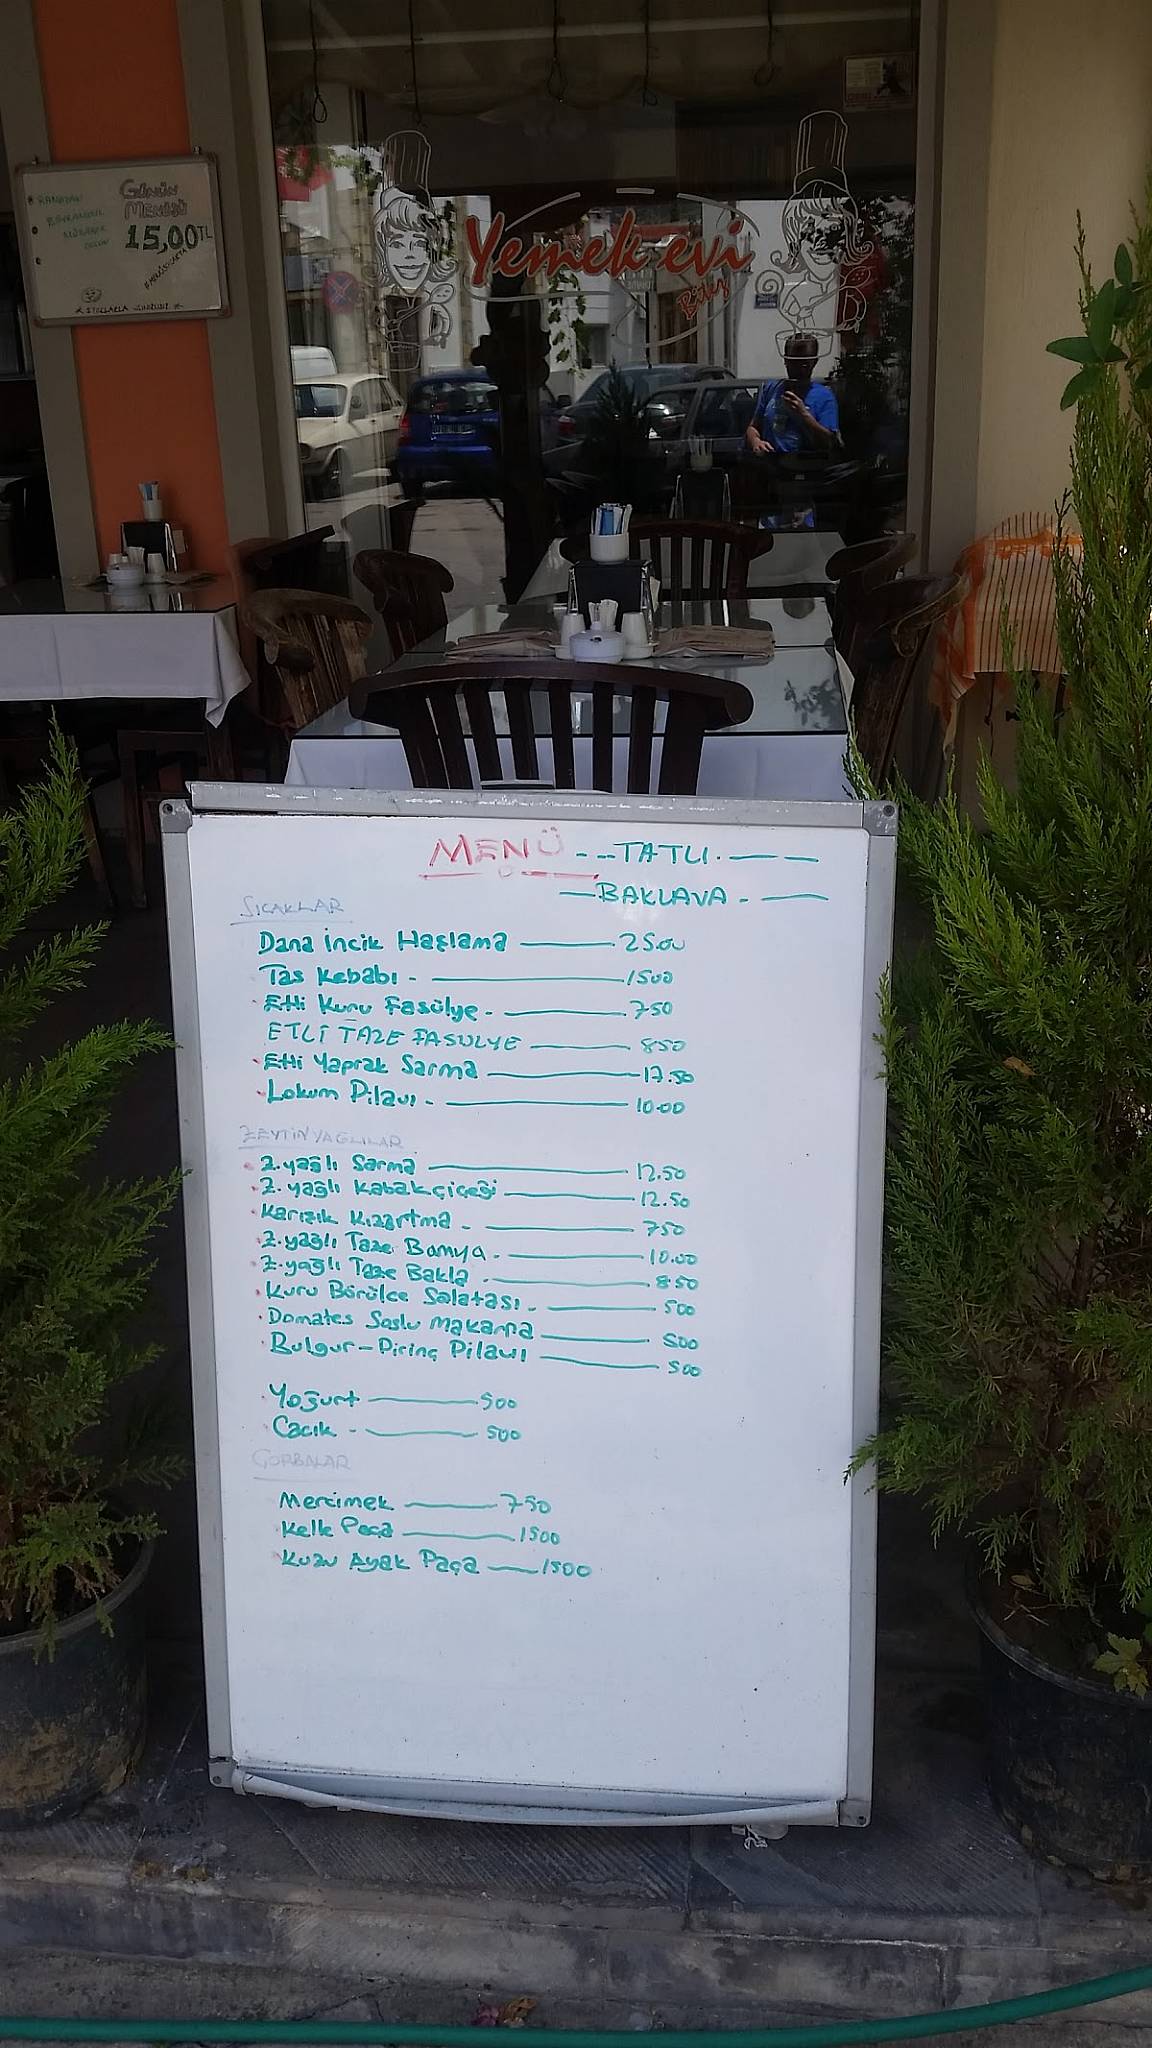 GÜNÜN
MENÜSÜ
15,00TL
RAMAZAN
BAYRAMINIZ
MÜBAREK
OLSUN
Yemek evi
MENÜ --TATLI.— —
—BAKLAVA . —
SICAKLAR
Dana incik Haşlama — 25.00
Tas Kebabı - — 1500
Etli Kuru Fasülye - — 750
ETLİ TAZE FASULYE — 850
Etli Yaprak Sarma — 17.50
Lokum Pilavı - — 10.00
ZEYTİNYAĞLILAR
Z.yağlı Sarma — 12.50
Z.yağlı Kabakçiçeği — 12.50
Karışık Kızartma - — 750
Z.yağlı Taze Bamya - — 10.00
Z.yağlı Taze Bakla - — 850
Kuru Börülce Salatası - — 500
Domates Soslu Makarna — 500
Bulgur-Pirinç Pilavı — 500
Yoğurt — 500
Cacık - — 500
ÇORBALAR
Mercimek — 750
Kelle Paça — 1500
Kuzu Ayak Paça — 1500